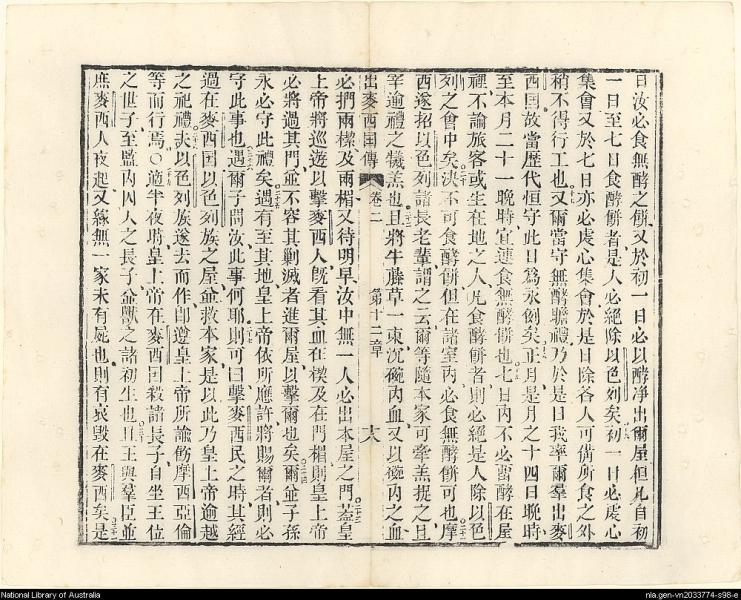 日汝必食無酵之餅又於初一日必以酵净出爾屋但凡自初
一日至七日食酵餅者是人必絕除以色列矣初一日必處心
集會又於七日亦必處心集會於是日除各人可備所食之外
稍不得行工也又爾當守無酵瞻禮乃於是日我率爾羣出麥
西囯故當歷代恒守此日爲永例矣正月是月之十四日晚時
至本月二十一晚時宜連食無酵餅也七日內不必留酵在屋
裡不論旅客或生在地之人凡食酵餅者則必絕是人除以色
列之會中矣決不可食酵餅但在諸室內必食無酵餅可也摩
西遂招以色列諸長老輩謂之云爾等隨本家可牽羔捉之且
宰逾禮之犧羔也且將牛藤草一束沉碗內血又以碗內之血
出麥西囯傳 卷二 第十二章
必捫兩樑及兩楣又待明早汝中無一人必出本屋之門蓋皇
上帝將巡遊以擊麥西人旣看其血在楔及在門楣則皇上帝
必將過其門並不容其剿滅者進爾屋以擊爾也矣爾並子孫
永必守此禮矣遇有至其地皇上帝依所應許將賜爾者則必
守此事也遇爾子問汝此事何耶則可曰擊麥西民之時其經
過在麥西囯以色列族之屋並救本家是以此乃皇上帝逾越
之祀禮夫以色列族遂去而作卽遵皇上帝所諭飭摩西亞倫
等而行焉○適半夜時皇上帝在麥西囯殺諸長子自坐王位
之世子至監內囚人之長子並獸之諸初生也且王與羣臣並
庶麥西人夜起又緣無一家未有屍也則有哀毀在麥西矣是
National Library of Australia
nla.gen-vn2033774-s98-e